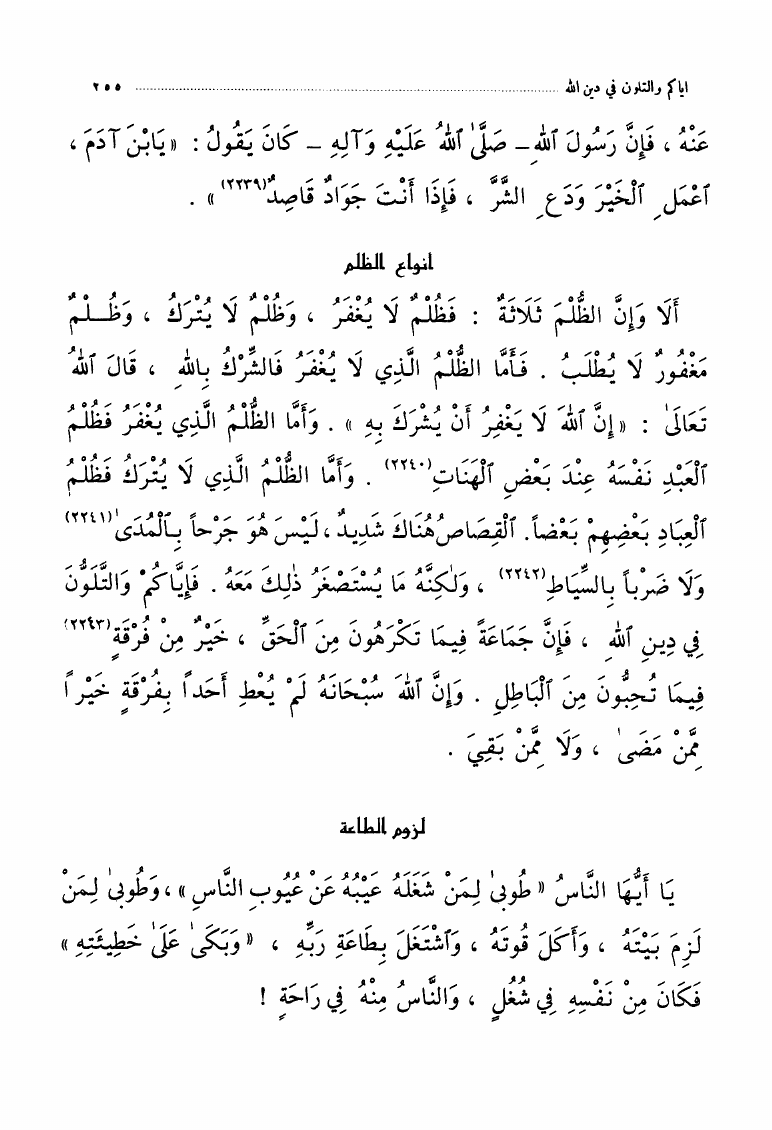 اياكم والتلون في دين الله ........................................ ٢٥٥
عَنْهُ ، فَإِنَّ رَسُولَ ٱللهِ – صَلَّىٰ ٱللهُ عَلَيْهِ وَآلِهِ – كَانَ يَقُولُ : « يَابْنَ آدَمَ ،
ٱعْمَلِ ٱلْخَيْرَ وَدَعِ الشَّرَّ ، فَإِذَا أَنْتَ جَوَادٌ قَاصِدٌ(٢٢٣٩) » .
انواع الظلم
أَلَا وَإِنَّ الظُّلْمَ ثَلَاثَةٌ : فَظُلْمٌ لَا يُغْفَرُ ، وَظُلْمٌ لَا يُتْرَكُ ، وَظُلْمٌ
مَغْفُورٌ لَا يُطْلَبُ . فَأَمَّا الظُّلْمُ الَّذِي لَا يُغْفَرُ فَالشِّرْكُ بِاللهِ ، قَالَ ٱللهُ
تَعَالَىٰ : « إِنَّ ٱللهَ لَا يَغْفِرُ أَنْ يُشْرَكَ بِهِ » . وَأَمَّا الظُّلْمُ الَّذِي يُغْفَرُ فَظُلْمُ
ٱلْعَبْدِ نَفْسَهُ عِنْدَ بَعْضِ ٱلْهَنَاتِ(٢٢٤٠) . وَأَمَّا الظُّلْمُ الَّذِي لَا يُتْرَكُ فَظُلْمُ
ٱلْعِبَادِ بَعْضِهِمْ بَعْضاً. ٱلْقِصَاصُ هُنَاكَ شَدِيدٌ ، لَيْسَ هُوَ جَرْحاً بِٱلْمُدَىٰ(٢٢٤١)
وَلَا ضَرْباً بِالسِّيَاطِ(٢٢٤٢) ، وَلٰكِنَّهُ مَا يُسْتَصْغَرُ ذٰلِكَ مَعَهُ . فَإِيَّاكُمْ وَالتَّلَوُّنَ
فِي دِينِ اللهِ ، فَإِنَّ جَمَاعَةً فِيمَا تَكْرَهُونَ مِنَ ٱلْحَقِّ ، خَيْرٌ مِنْ فُرْقَةٍ(٢٢٤٣)
فِيمَا تُحِبُّونَ مِنَ ٱلْبَاطِلِ . وَإِنَّ ٱللهَ سُبْحَانَهُ لَمْ يُعْطِ أَحَداً بِفُرْقَةٍ خَيْراً
مِمَّنْ مَضَىٰ ، وَلَا مِمَّنْ بَقِيَ .
لزوم الطاعة
يَا أَيُّهَا النَّاسُ « طُوبىٰ لِمَنْ شَغَلَهُ عَيْبُهُ عَنْ عُيُوبِ النَّاسِ » ، وَطُوبىٰ لِمَنْ
لَزِمَ بَيْتَهُ ، وَأَكَلَ قُوتَهُ ، وَٱشْتَغَلَ بِطَاعَةِ رَبِّهِ ، « وَبَكَىٰ عَلَىٰ خَطِيئَتِهِ »
فَكَانَ مِنْ نَفْسِهِ فِي شُغُلٍ ، وَالنَّاسُ مِنْهُ فِي رَاحَةٍ !